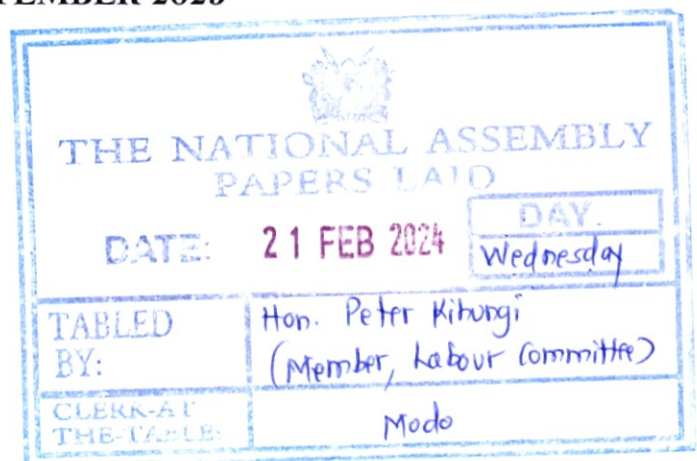 2023
THE NATIONAL ASSEMBLY
PAPERS LAID
DATE: 21 FEB 2024
DAY.
Wednesday
TABLED BY:
Hon. Peter Kihungi
(Member, Labour Committee)
CLERK-AT
THE-TABLE:
Modo